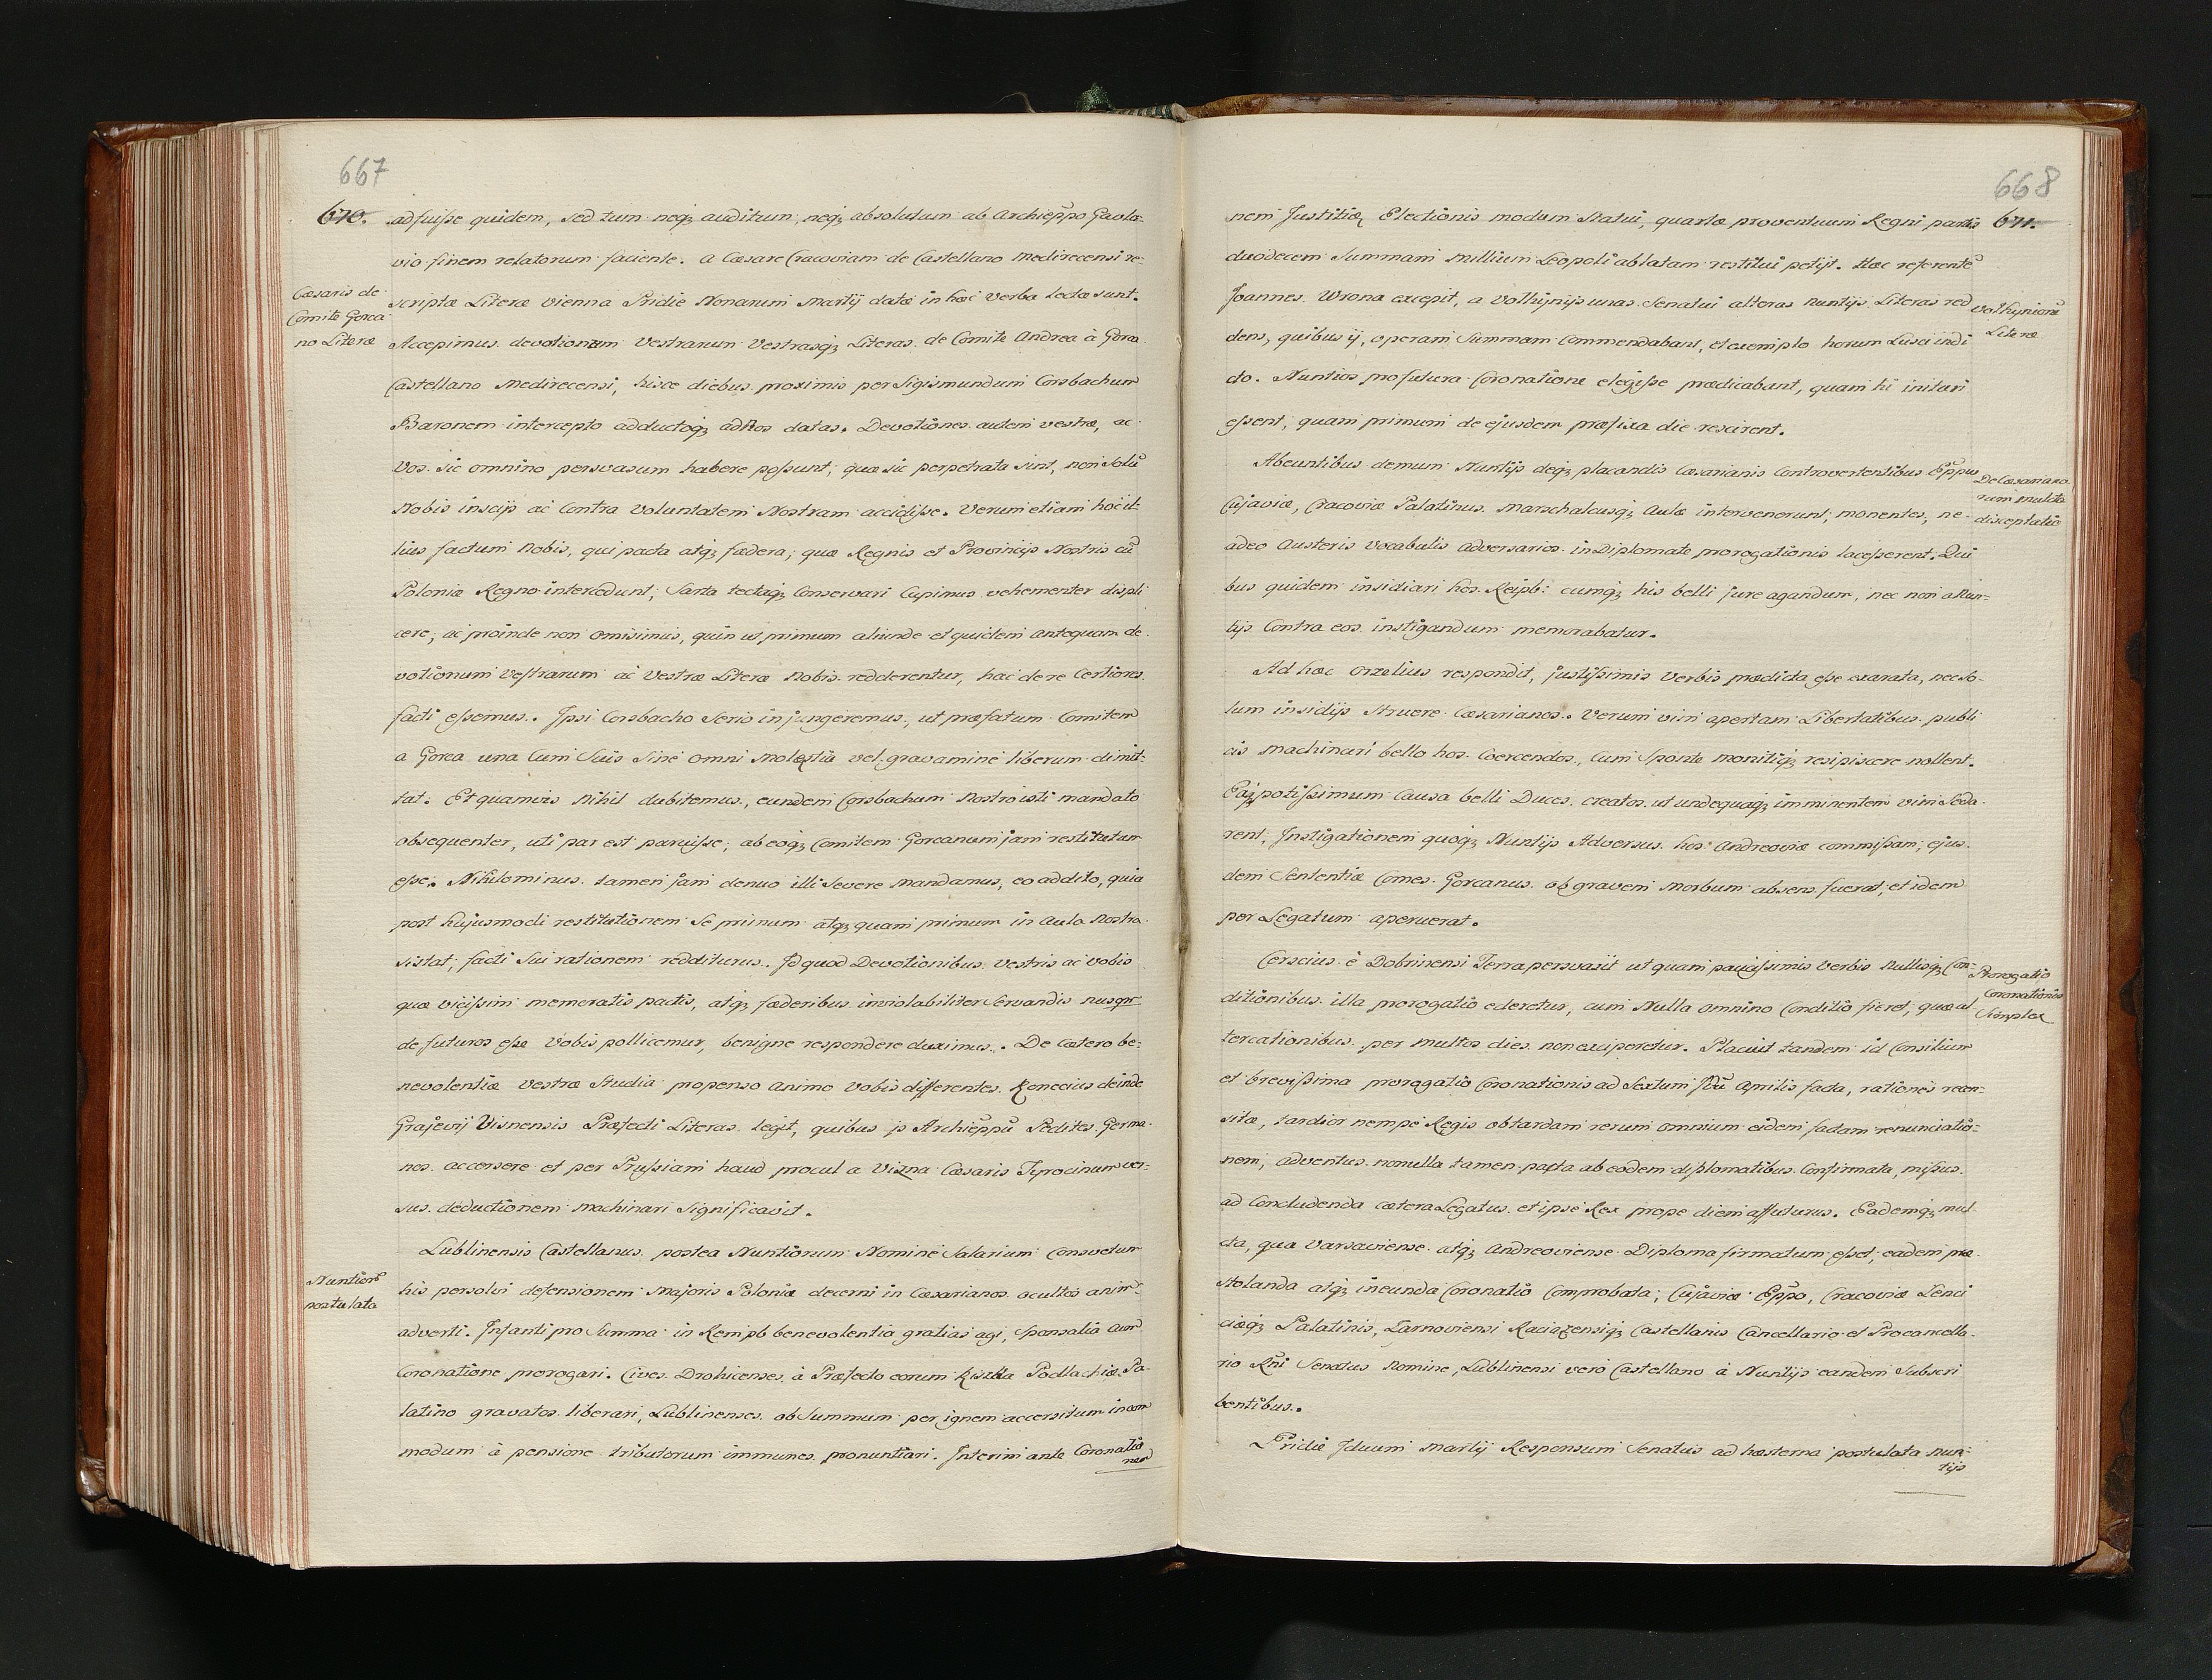 667
670.
adfuisse quidem, sed tum neq; auditum, neq; absolutum ab Archiēppo Gaola-
vio finem relatorum faciente. A Cæsare Cracoviam de Castellano Medirecensi re-
Cæsaris de
Comite Gorca
no Literæ
scriptæ Literæ Vienna Pridie Nonarum Martij datæ in hæc Verba lectæ sunt.
Accepimus devotionum Vestrarum Vestrasq; Literas de Comite Andrea à Gorca
Castellano Medirecensi, hisce diebus proximis per Sigismundum Corsbachum
Baronem intercepto adductoq; ad Nos datas. Devotiones autem vestræ, ac
Vos sic omnino persvasum habere possunt; quæ sic perpetrata sint, non Solū
Nobis inscijs ac Contra Voluntatem Nostram accidisse. Verum etiam hoc il-
lius factum Nobis, qui pacta atq; fædera; quæ Regnis et Provincijs Nostris cū
Poloniæ Regno intercedunt; Sarta tectaq; Conservari Cupimus vehementer displi
cere; ac proinde non omisimus, quin ut primum aliunde et quidem antequam de-
votionum Vestrarum ac Vestræ Literæ Nobis redderentur, hac de re Certiores
facti essemus. Ipsi Corsbacho Serio injungeremus, ut præfatum Comitem
a Gorca una Cum Suis Sine omni Molestia vel gravamine liberum dimit-
tat. Et quamvis Nihil dubitemus, eundem Corsbachum Nostro isti mandato
obsequenter, uti par est paruisse; ab eoq; Comitem Gorcanum jam restitutum
esse. Nihilominus tamen jam denuo illi Severe Mandamus, eo addito, quia
post hujusmodi restitutionem Se primum atq; quam primum in Aula Nostra
sistat; facti Sui rationem redditurus. Id quod Devotionibus Vestris ac Vobis
quæ vicissim memoratis pactis, atq; fæderibus inviolabiliter Servandis nusqr
de futuros esse Vobis pollicemur, benigne respondere duximus. De Cætero be-
nevolentiæ Vestræ Studia propenso animo Vobis differentes. Konecius deinde
Grajevij Visnensis Præfecti Literas legit, quibus is Archiēppū Pedites Germa-
nos accersere et per Prussiam haud procul a Vizna Cæsaris Tyrocinum ver-
sus deductionem machinari Significavit.
Lublinensis Castellanus postea Nuntiorum Nomine Salarium Consvetum
Nuntiorū
postulata
his persolvi defensionem Majoris Poloniæ decerni in Cæsarianos occultos anim-
adverti. Infanti pro Summa in Rempb benevolentia gratias agi, Sponsalia Cum
Coronatione prorogari. Cives Drohicenses à Præfecto eorum Kiszka Podlachiæ Pa-
latino gravatos liberari, Lublinenses ob Summum per ignem accersitum incom
modum à pensione tributorum immunes pronuntiari. Interim ante Coronatio
nem
668
nem Justitiæ Electionis modum Statui, quartæ proventuum Regni partis
671.
duodecem Summam Millium Leopoli ablatam restitui petijt. Hæc referente
Joannes Wrona excepit, a Volhynijs unas Senatui alteras Nuntijs Literas red
Volhyniorū
Literæ
dens, quibus ij, operam Summam Commendabant, et exemplo horum Lusci indi
cto. Nuntios pro futura Coronatione elegisse prædicabant, quam hi inituri
essent, quam primum de ejusdem præfixa die rescirent.
Abeuntibus demum Nuntijs deq; placandis Cæsarianis Controvertentibus Eppus
De Cæsariano-
rum Mulcta
disceptatio
Cujaviæ, Cracoviæ Palatinus Marschalcusq; Aulæ intervenerunt; monentes, ne
adeo Austeris Vocabulis Adversarios in Diplomate prorogationis lacesserent. Qui
bus quidem insidiari hos Reipb: cumq; his belli jure agandum, nec non a Nun-
tijs Contra eos instigandum memorabatur.
Ad hæc Orzelius respondit, justissimis Verbis prædicta esse exarata, nec So-
lum insidijs Struere Cæsarianos. Verum vim apertam Libertatibus publi
cis Machinari bello hos Coercendos, Cum Sponte monitiq; resipiscere nollent.
Eaq; potissimum Causa belli Duces creatos ut undequaq; imminentem vim Seda-
rent; Instigationem quoq; Nuntijs Adversus hos Andreoviæ commissam; ejus-
dem Sententiæ Comes Gorcanus ob gravem Morbum absens fuerat, et idem
per Legatum aperuerat.
Cerscius è Dobrinensi Terra persvasit ut quam paucissimis Verbis Nullisq; Con-
Prorogatio
Coronationis
Simplex
ditionibus illa prorogatio ederetur, cum Nulla omnino Conditio fieret, quæ al
tercationibus per multos dies non exciperetur. Placuit tandem id Consilium
et brevissima prorogatio Coronationis ad Sextum Idū Aprilis facta, rationes recen-
sitæ, tardior nempe Regis ob tardam rerum omnium eidem factam renunciatio-
nem, adventus nonulla tamen pacta ab eodem diplomatibus Confirmata, missus
ad Concludenda cætera Legatus et ipse Rex prope diem affuturus. Eademq; mul-
cta, qua Varsaviense atq; Andreoviense Diploma firmatum esset, eadem præ-
stolanda atq; ineunda Coronatio Comprobata; Cujaviæ Eppo, Cracoviæ Lenci
ciæq; Palatinis, Tarnoviensi Raciązensiq; Castellanis Cancellario et Procancella-
rio Rni Senatus Nomine, Lublinensi vero Castellano à Nuntijs eandem Subscri
bentibus.
Pridie Iduum Martij Responsum Senatus ad hæsterna postulata Nun-
tijs